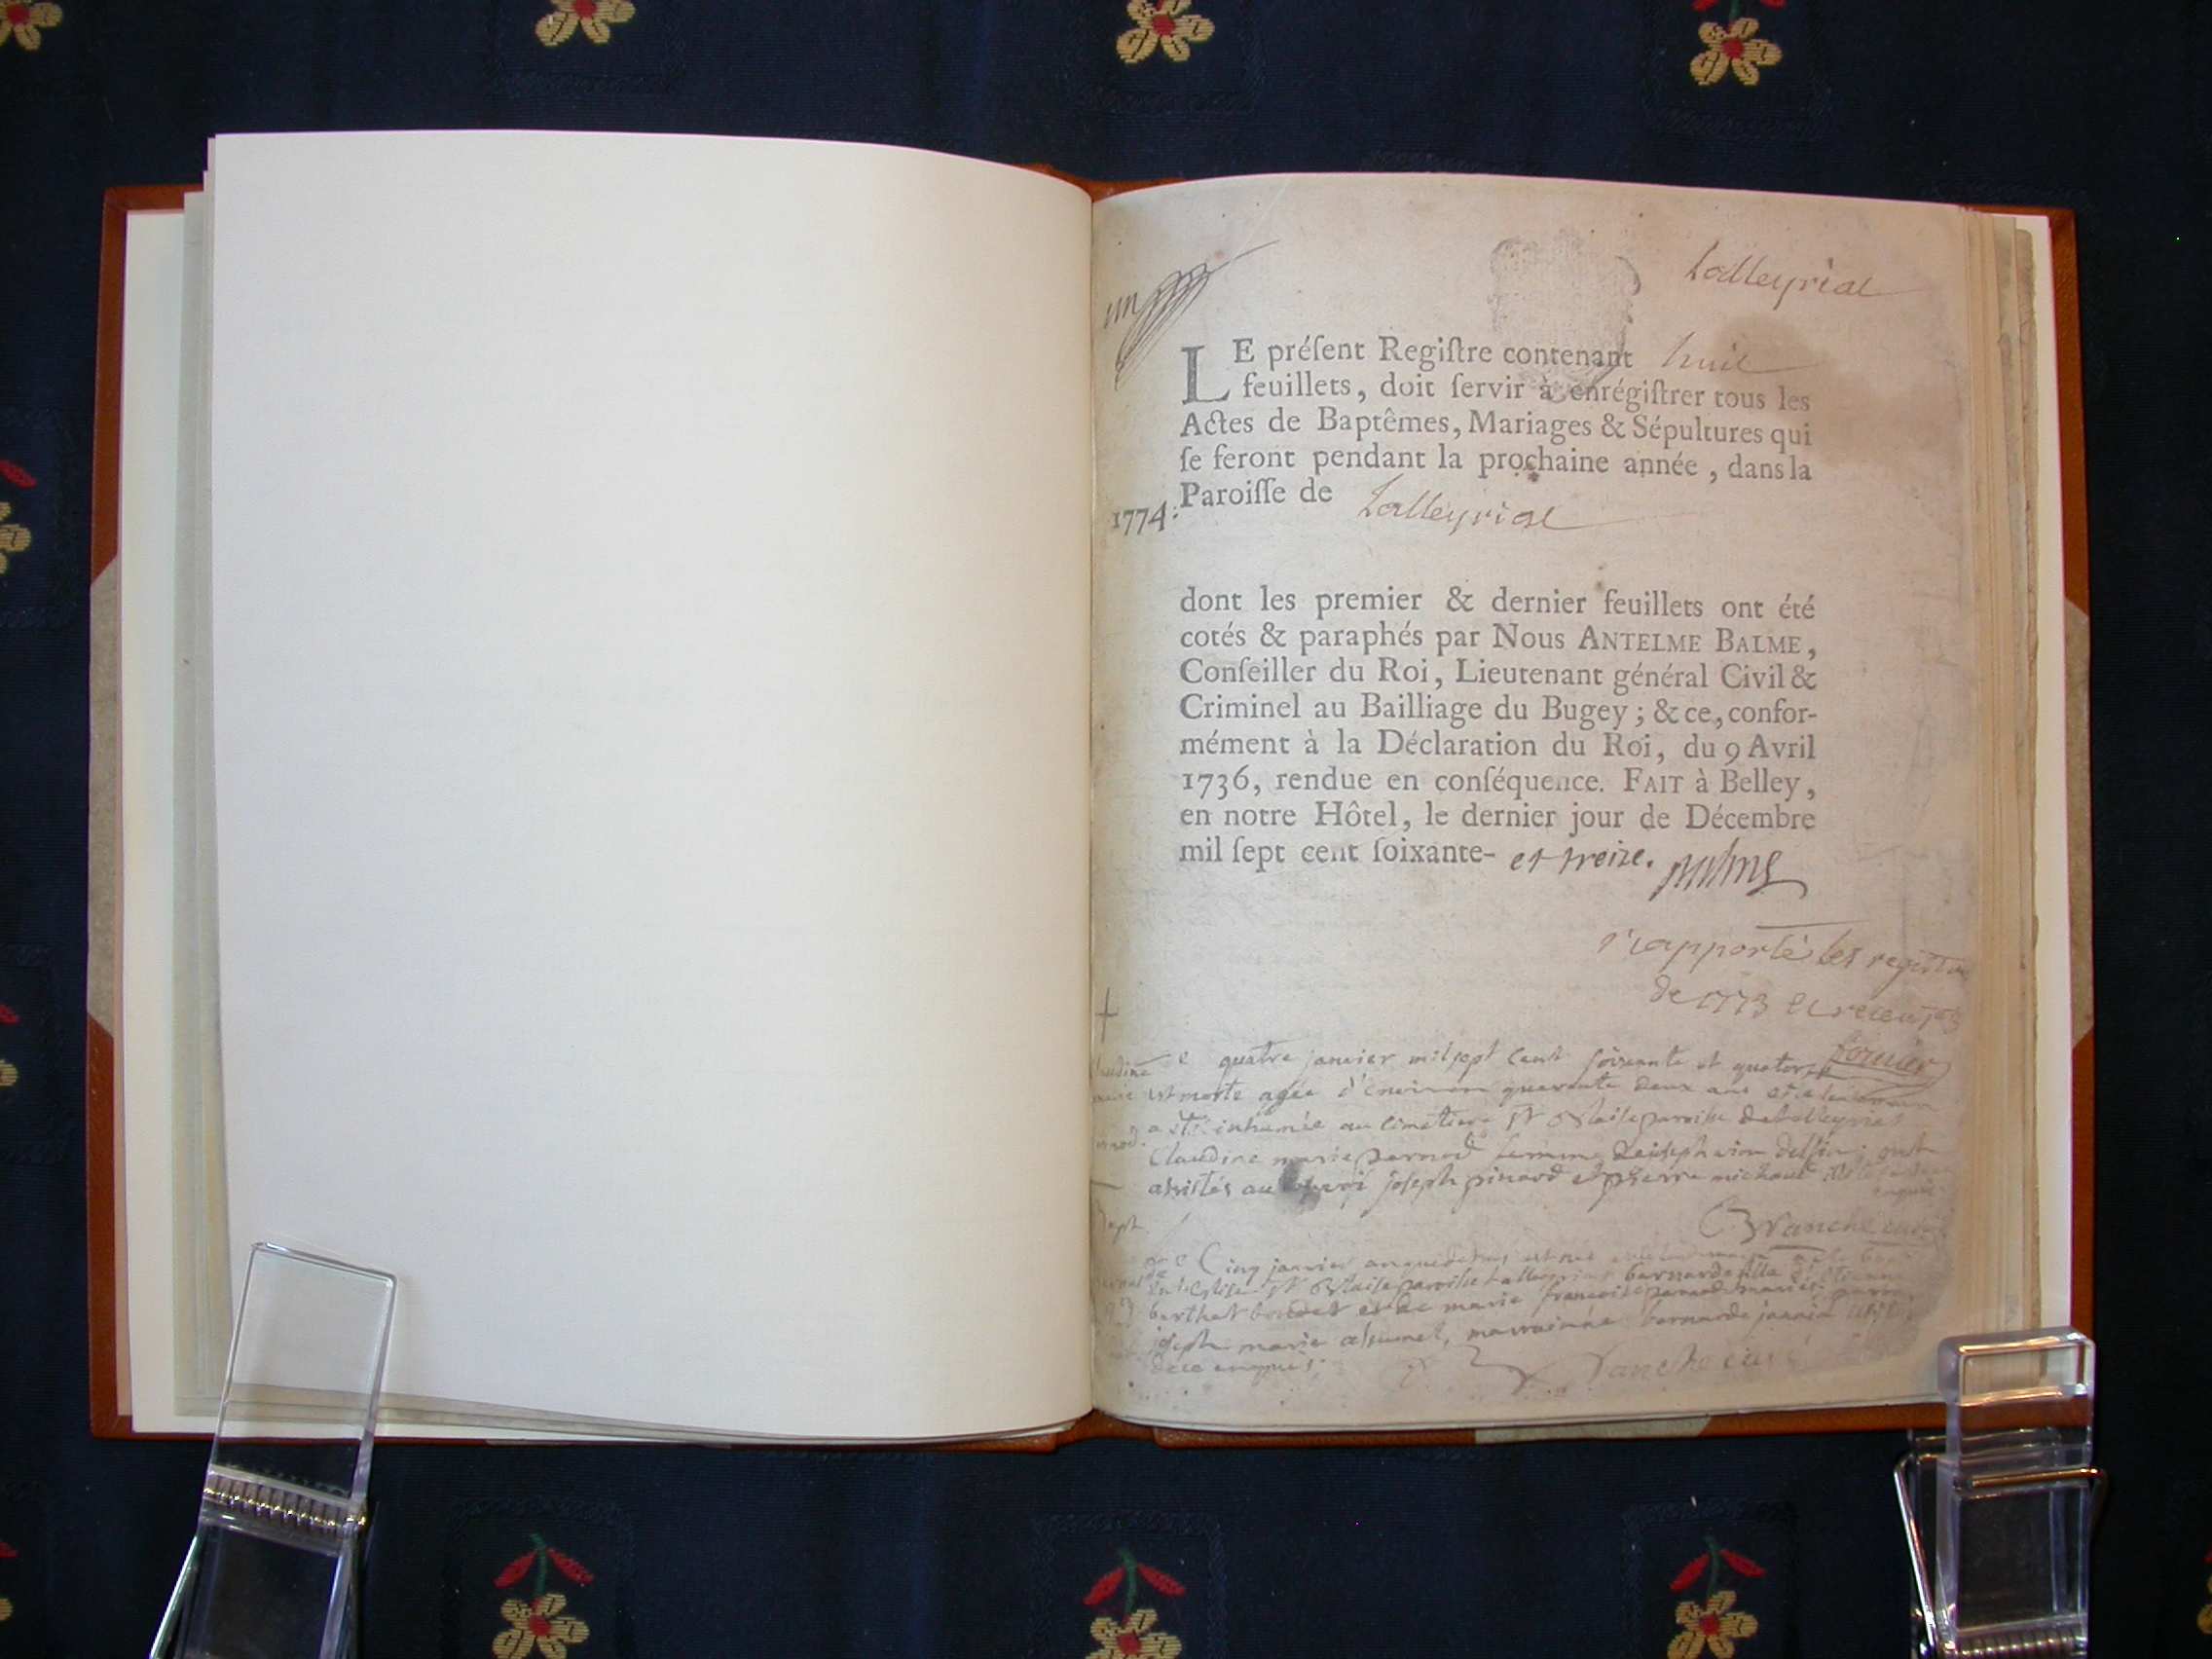 Lalleyriat
un
LE préſent Regiſtre contenant huit
feuillets, doit ſervir à enrégiſtrer tous les
Actes de Baptêmes, Mariages & Sépultures qui
ſe feront pendant la prochaine année, dans la
Paroiſſe de Lalleyriat
1774:
dont les premier & dernier feuillets ont été
cotés & paraphés par Nous ANTELME BALME,
Conſeiller du Roi, Lieutenant général Civil &
Criminel au Bailliage du Bugey; & ce, confor-
mément à la Déclaration du Roi, du 9 Avril
1736, rendue en conſéquence. FAIT à Belley,
en notre Hôtel, le dernier jour de Décembre
mil ſept cent ſoixante- et treize. Balme
rapporté les registres
de 1773 et receu
quatre janvier mil sept cent soixante et quatorze
est morte agée d'environ quarante deux ans et
a été inhumée au cimetiere St Blaise paroisse de Lalleyriat
Claudine marie pernod femme de joseph ; ont
assistés au convoi joseph pinard et pierre michaud
Branche curé
Cinq janvier
St Blaise paroisse Lalleyriat bernarde fille
berthet et de marie françoise
joseph marie , marrainne bernarde jannin
de ce enquis. Branche curé